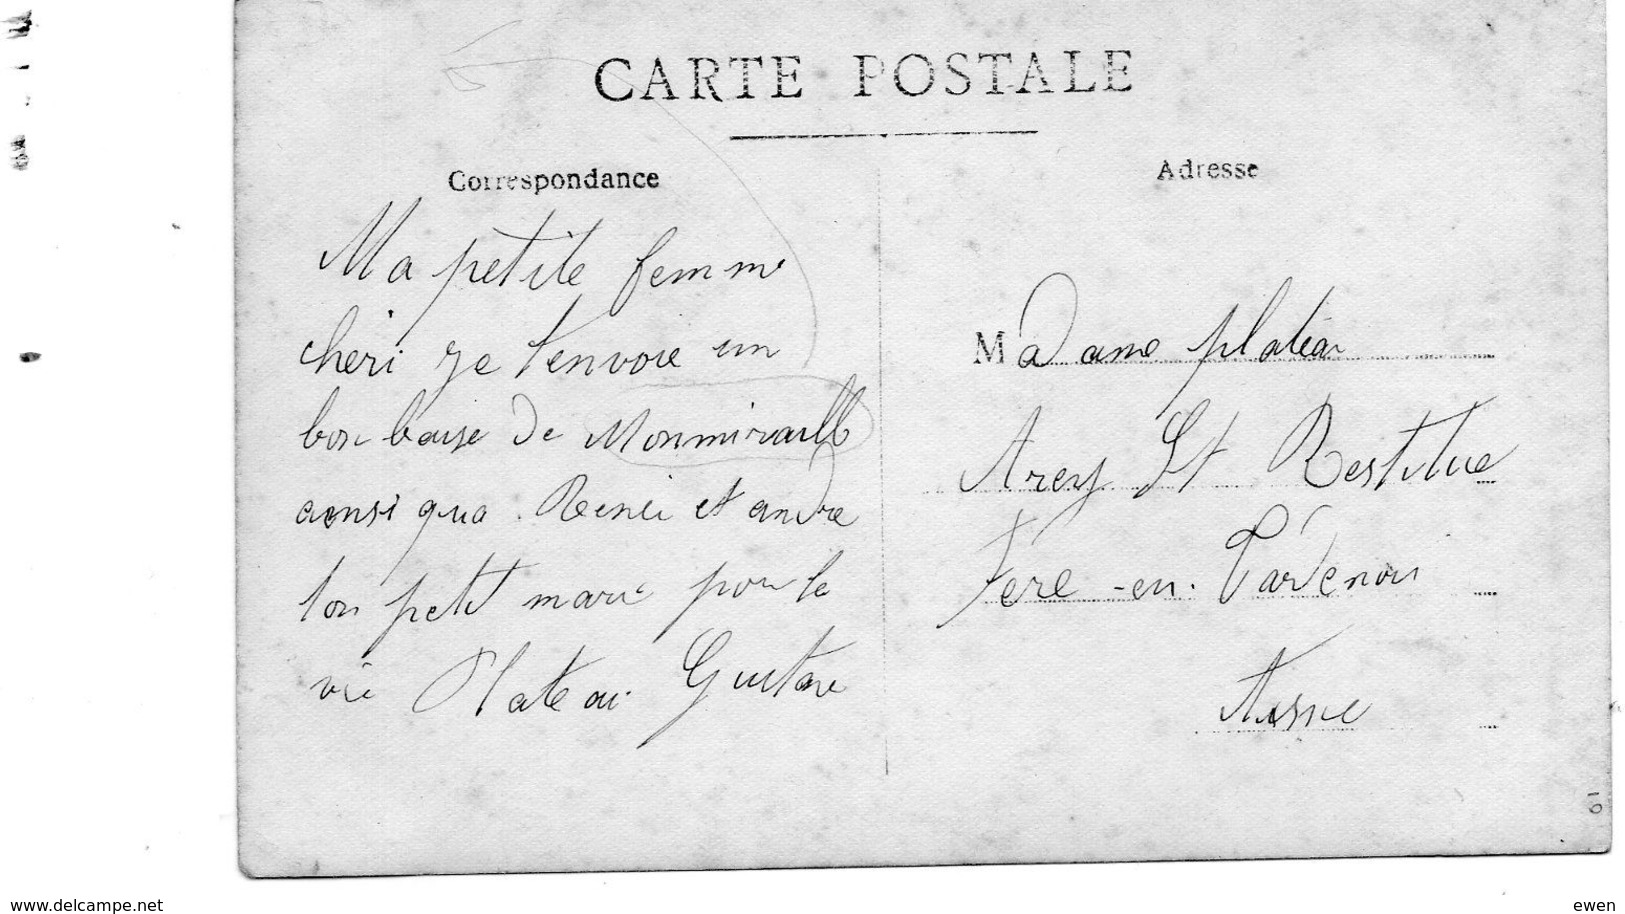 CARTE POSTALE
Correspondance
Ma petite femme
cheri je t'envoie un
bon baise de Monmiraill
ainsi qua Renei et andre
ton petit marie pour la
vie Plateau Gustave
Adresse
Madame plateau
Arcy St Restitue
Fère-en-Tardenois
Aisne
19
www.delcampe.net
ewen